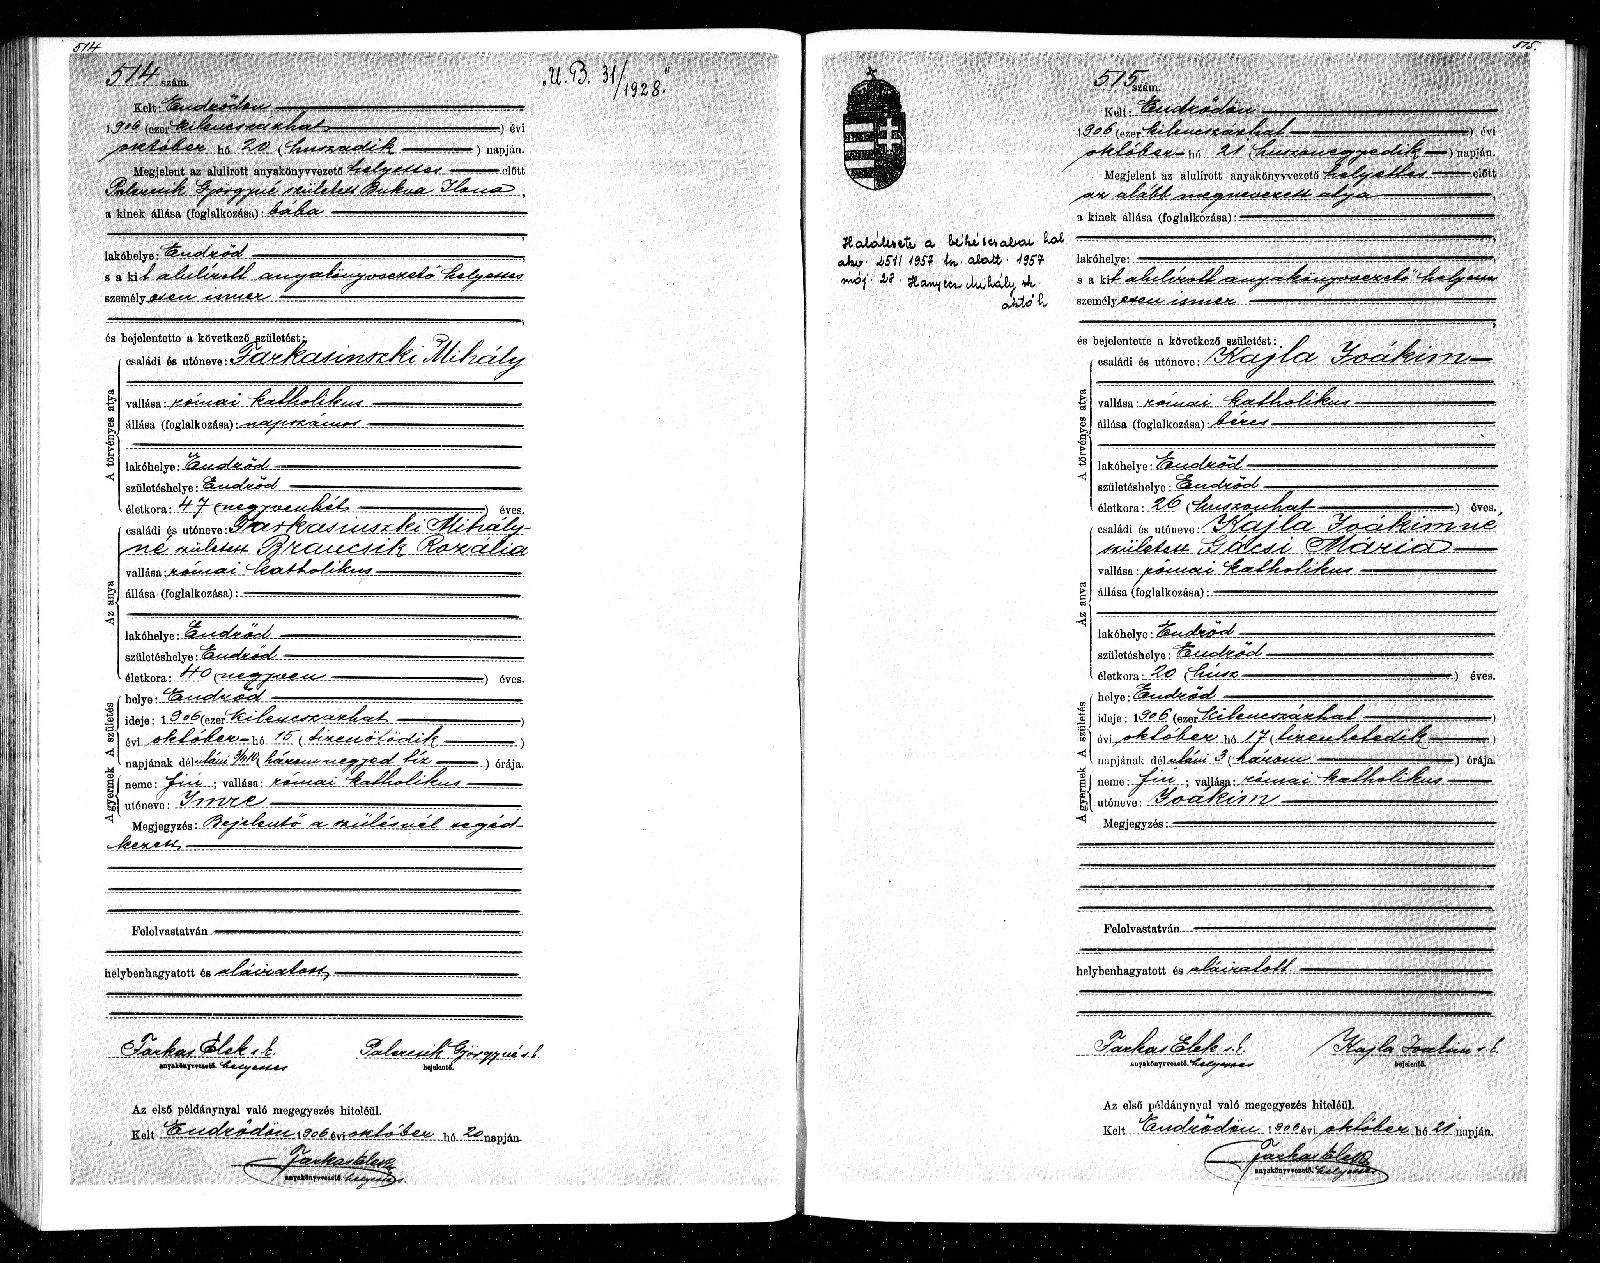 514
514 szám.
„U. B. 31/1928."
Kelt: Endrődön
1906 (ezer kilencszázhat) évi
október hó 20 (huszadik) napján.
Megjelent az alulírott anyakönyvvezető helyettes előtt
Palercsik Györgyné született Bukva Ilona,
a kinek állása (foglalkozása): bába
lakóhelye: Endrőd
s a kit alulírott anyakönyvvezető helyettes
személyesen ismer
és bejelentette a következő születést:
A törvényes atya
családi és utóneve: Farkasinszki Mihály
vallása: római katholikus
állása (foglalkozása): napszámos
lakóhelye: Endrőd
születéshelye: Endrőd
életkora: 47 (negyvenhét) éves.
Az anya
családi és utóneve: Farkasinszki Mihály-
né született Brancsik Rozália
vallása: római katholikus
állása (foglalkozása):
lakóhelye: Endrőd
születéshelye: Endrőd
életkora: 40 (negyven) éves.
A születés
helye: Endrőd
ideje: 1906 (ezer kilencszázhat)
évi október hó 15 (tizenötödik)
napjának délutáni 3/4 10 (háromnegyed tíz) órája.
A gyermek
neme: fiú; vallása: római katholikus
utóneve: Imre
Megjegyzés: Bejelentő a szülésnél segéd-
kezett
Felolvastatván
helybenhagyatott és aláíratott
Farkas Elek s. k. Palercsik Györgyné s. k.
anyakönyvvezető. helyettes bejelentő.
Az első példánynyal való megegyezés hiteléül.
Kelt Endrődön 1906 évi október hó 20 napján.
Farkas Elek
anyakönyvvezető. helyettes.
515.
515 szám.
Halálesete a békéscsabai hal.
akv. 251/1957 fsz. alatt 1957
máj. 28 Hanyecz Mihály sk
Kelt: Endrődön
1906 (ezer kilencszázhat) évi
október hó 21 (huszonegyedik) napján.
Megjelent az alulírott anyakönyvvezető helyettes előtt
az alább megnevezett atya
a kinek állása (foglalkozása):
lakóhelye:
s a kit alulírott anyakönyvvezető helyettes
személyesen ismer
és bejelentette a következő születést:
A törvényes atya
családi és utóneve: Kajla Joákim
vallása: római katholikus
állása (foglalkozása): béres
lakóhelye: Endrőd
születéshelye: Endrőd
életkora: 26 (huszonhat) éves.
Az anya
családi és utóneve: Kajla Joákimné
született Gácsi Mária
vallása: római katholikus
állása (foglalkozása):
lakóhelye: Endrőd
születéshelye: Endrőd
életkora: 20 (húsz) éves.
A születés
helye: Endrőd
ideje: 1906 (ezer kilencszázhat)
évi október hó 17 (tizenhetedik)
napjának délutáni 3 (három) órája.
A gyermek
neme: fiú; vallása: római katholikus
utóneve: Joákim
Megjegyzés:
Felolvastatván
helybenhagyatott és aláíratott
Farkas Elek s. k. Kajla Joákim s. k.
anyakönyvvezető. helyettes bejelentő.
Az első példánynyal való megegyezés hiteléül.
Kelt Endrődön 1906 évi október hó 21 napján.
Farkas Elek
anyakönyvvezető. helyettes